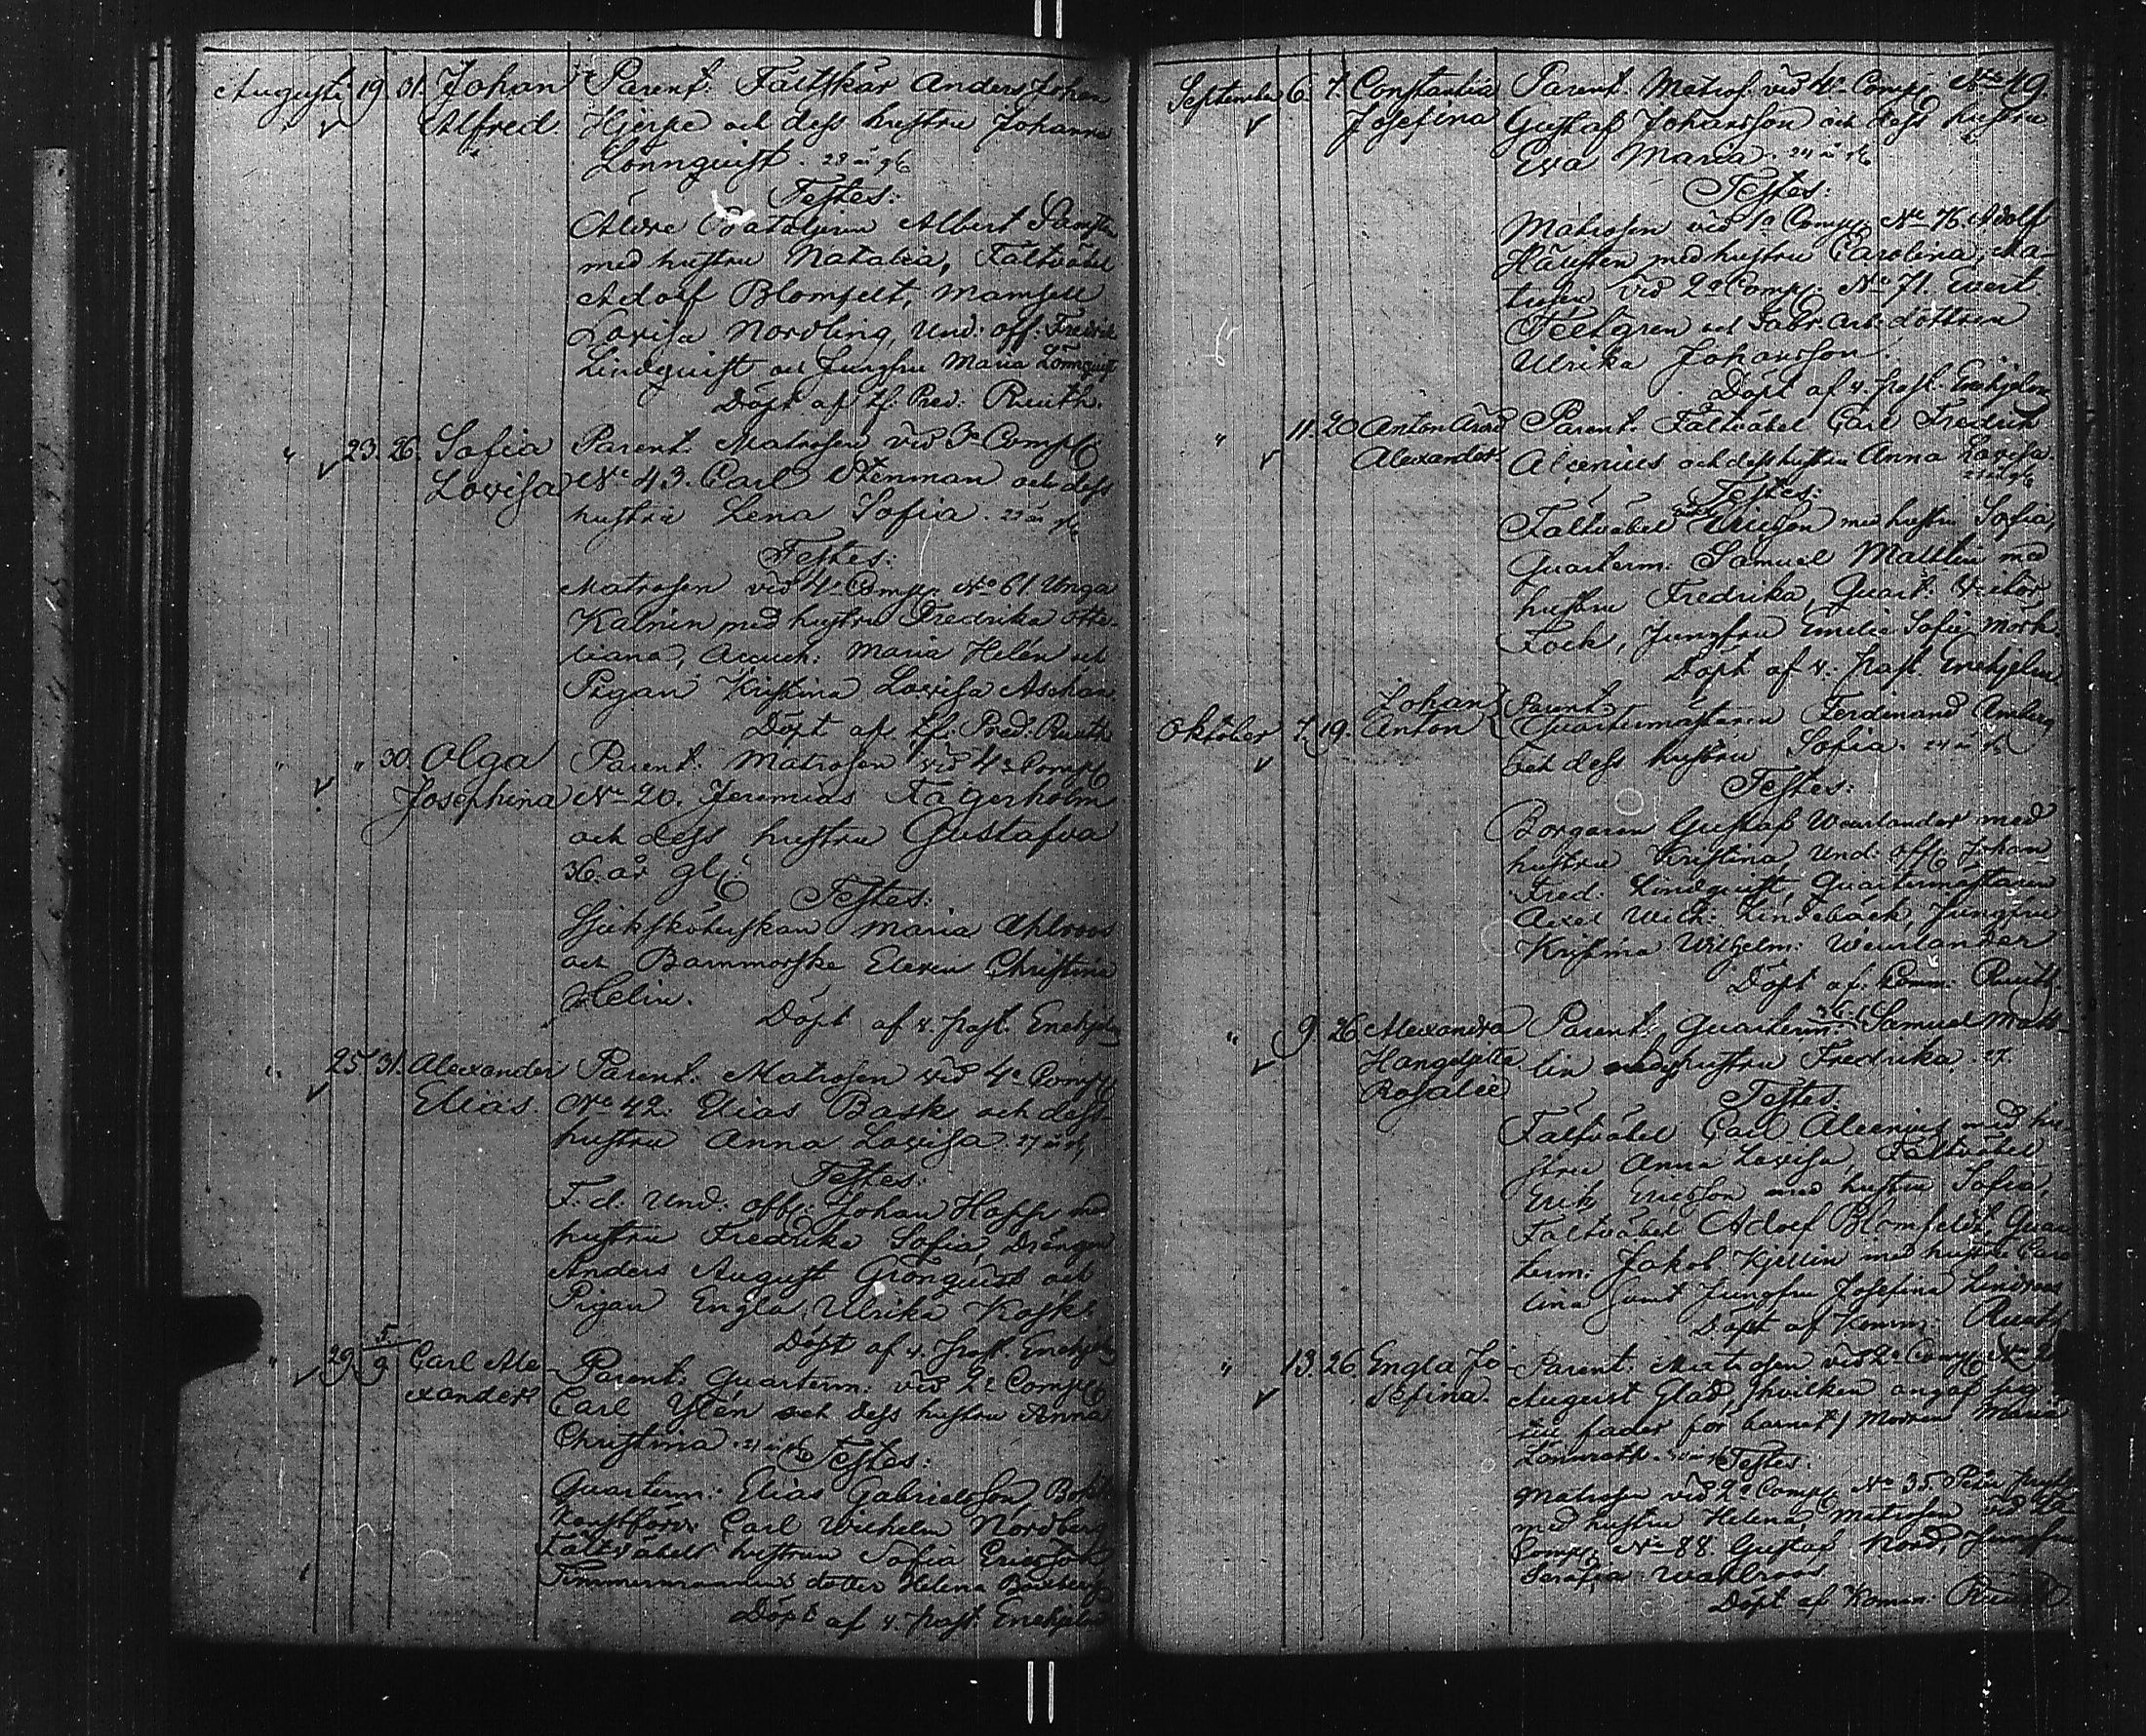 Augusti 19. 31. Johan Parent. Fältskär Anders Johan
Alfred Hjerpe och dess hustru Johanna
Lönnquist. 28 år
Testes:
Albert
med hustru Natalia, Fältväbel
Adolf Blomfelt, Mamsell
Lovisa Nordling, Und: off: Fredrik
Lindquist och Jungfru Maria Lönnquist
Döpt af tf. Pred: Ruuth.
" 23. 26. Sofia Parent. Matrosen vid 3e Comp
Lovisa No 43. Carl Stenman och dess
hustru Lena Sofia.
Testes:
Matrosen vid 4e Comp. No 61. Unga
Kalnin med hustru Fredrika Otte-
liana, Accuch: Maria Helén och
Pigan Kristina Lovisa
Döpt af tf. Pred: Ruuth
" " 30. Olga Parent: Matrosen vid 4e Comp
Josephina No 20. Jeremias Fagerholm
och dess hustru Gustafva
36. år gl.
Testes:
Sjuksköterskan Maria Ahlroos
och Barnmorske Eleven Christina
Helin.
Döpt af v. past. Enehjelm
" 25. 31. Alexander Parent: Matrosen vid 4e Comp
Elias. No 42. Elias Bask och dess
hustru Anna Lovisa. 27 år
Testes:
F. d. Und: off: Johan med
hustru Fredrika Sofia, Drängen
Anders August Grönquist och
Pigan Engla Ulrika Koski
Döpt af v. past. Enehjelm
" 29. 5/9 Carl Ale- Parent: Quarterm: vid 2e Comp
xander Carl Ylén och dess hustru Anna
Christina.
Testes:
Quarterm: Elias Gabrielsson,
Carl Wilhelm Nordberg
Fältväbels hustrun Sofia Ericsson
Timmermannens dotter Helena
Döpt af v. past. Enehjelm
September 6. 7. Constantia Parent. Matros. vid 4e Comp. No 49.
Josefina Gustaf Johansson och dess hustru
Eva Maria. 24 år
Testes:
Matrosen vid 1a Comp No 76. Adolf
med hustru Carolina, Ma-
trosen vid 2a Comp No 71. Evert
och Fabr. arb. dottren
Ulrika Johansson.
Döpt af v. past. Enehjelm
" 11. 20. Anton Arvid Parent. Fältväbel Carl Fredrik
Alexander Alcenius och dess hustru Anna Lovisa
Testes:
Fältväbel Ericsson med hustru Sofia,
Quarterm: Samuel Mattlin med
hustru Fredrika, Quart: Victor
Fock, Jungfru Emilie Sofie Mörk.
Döpt af v. past. Enehjelm
Oktober 7. 19. Johan Anton Parent. Quartermästaren Ferdinand Amberg
och dess hustru Sofia.
Testes:
Borgaren Gustaf Weurlander med
hustru Kristina, Und: off: Johan
Fred: Lindquist, Quartermästaren
Axel Wilh: Lindebäck, Jungfru
Kristina Wilhelm: Weurlander
Döpt af: Komm. Ruuth.
" 9. 26. Alexandra Parent. Quarterm: Samuel Matt-
Hangelotta lin hustru Fredrika. 27.
Rosalie
Testes.
Fältväbel Carl Alcenius med hu-
stru Anna Lovisa, Fältväbel
Erik Ericsson med hustru Sofia,
Fältväbel Adolf Blomfeldt, Quar-
term: Jakob Kjellin med hustru Caro-
lina samt Jungfru Josefina Lindroos
Döpt af Komm: Ruuth
" 13. 26. Engla Jo- Parent. Matrosen vid 2a Comp No
sefina. August Glad, /hvilken angaf sig
till fader för barnet/ Modren Maria
Lönnroth. Testes:
Matrosen vid 2a Comp No 35.
med hustru Helena, Matrosen vid
Comp No 88. Gustaf Nord, Jungfru
Serafia Wahlroos
Döpt af Komm: Ruuth